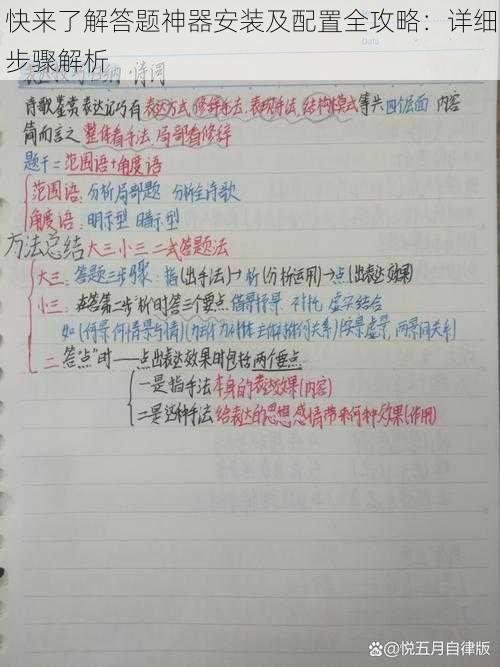 快来了解答题神器安装及配置全攻略：详细
步骤解析
诗词
诗歌鉴赏表达记巧有 表达方式 修辞手法、表现手法、结构模式等共四个层面 内容
简而言之 整体看手法,局部看修辞
题干=范围语+角度语
范围语:分析局部题 分析全诗歌
角度语:明示型 暗示型
方法总结 大三小三二式答题法
大三:答题三步骤:指(出手法)→析(分析运用)→点(出表达效果)
小三:在答第二步"析"时答三个要点 借景抒景 衬托 虚实结合
如(何景何情景与情)
二 答"点"时——点出表达效果时包括两个要点
一是指手法本身的表达效果(内容)
二是这种手法给表达的思想感情带来何种效果(作用)
@悦五月自律版